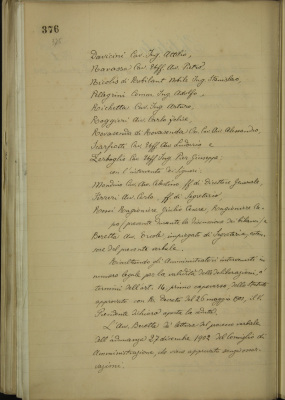 376
Davicini Cav. Ing. Attilio,
Navassa Cav. Uff. Avv. Pietro,
Nicolis di Robilant Nobile Ing. Stanislao,
Pellegrini Comm. Ing. Adolfo,
Reichetta Cav. Ing. Arturo,
Reggioni Avv. Carlo Felice,
di Cav. Avv. Alessandro,
Scarfiotti Cav. Uff. Avv. Ludovico e
Cav. Uff. Ing. Pier Giuseppe,
con l'intervento dei Signori:
Mandino Cav. Avv. ff. di Direttore Generale,
Avv. Carlo, ff. di Segretario
Rossi Ragioniere Giulio Cesare, Ragioniere Ca-
po (presente durante la discussione del bilancio) e
Beretta Avv. impiegato di Segreteria, esten-
sore del presente verbale.
Risultando gli Amministratori intervenuti in
numero legale per la validità delle deliberazioni, a
termini dell'art. 14 primo capoverso, dello Statuto
approvato con R. Decreto del 26 maggio 1901, il S.
Presidente dichiara aperta la seduta.
L'Avv. Beretta dà lettura del processo verbale
dell'adunanza 27 dicembre 1902 del Consiglio di
Amministrazione, che viene approvato senza osser-
vazioni.